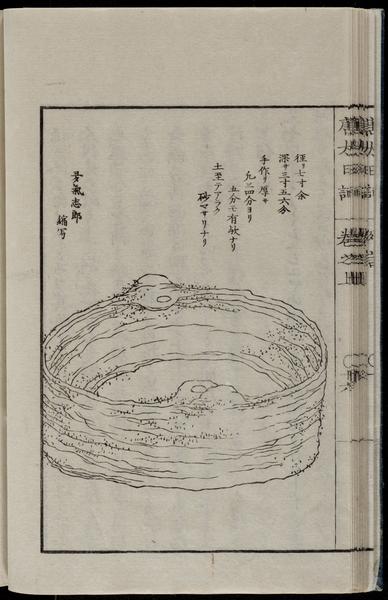 径リ七寸余
深サ三寸五六分
手作リ厚サ
凡三四分ヨリ
五分モ有故ナリ
土至テアラク
砂マサリナリ
志郎
縮写